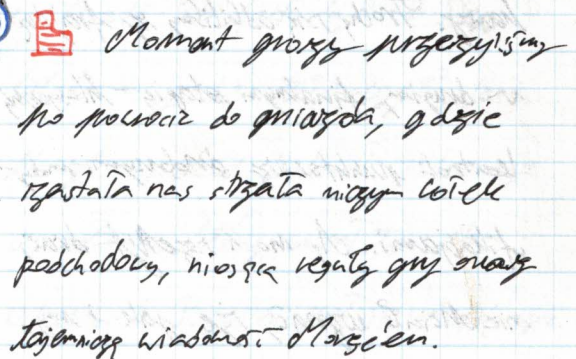 Moment grozy przeżyliśmy
po powrocie do gniazda, gdzie
zastała nas strzała niczym wotek
podchodowy, niosąca reguły gry oraz
tajemniczą wiadomość